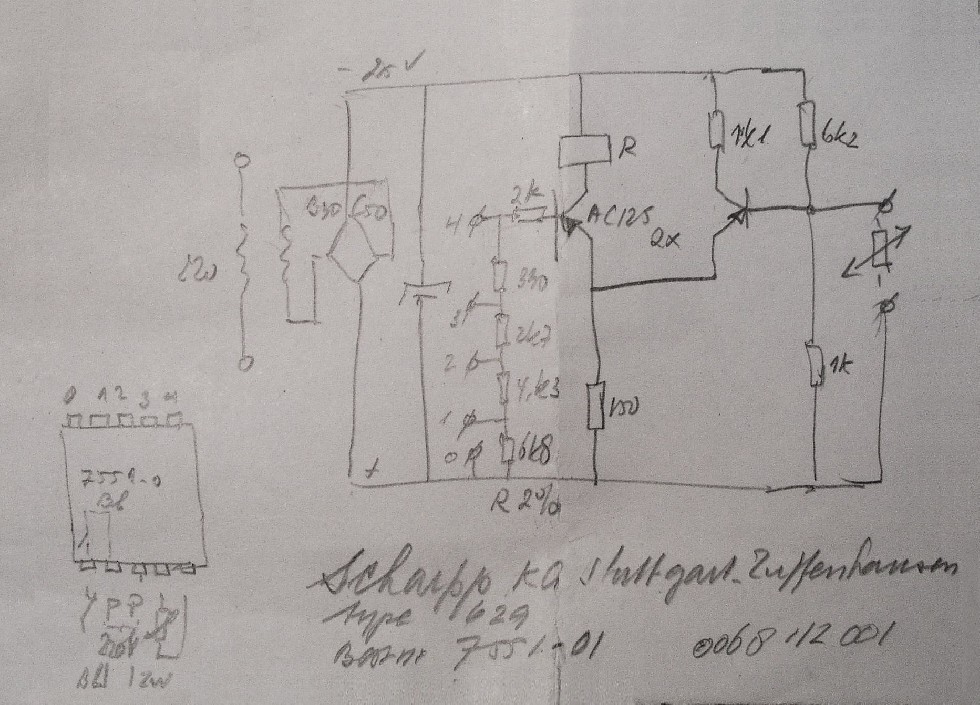 - 25 V
R
1k1
6k2
B30 C50
2k
4
AC125
2x
220
390
3
2k7
2
4,k3
1k
1
150
0
6k8
+
R 2%
0 1 2 3 4
7551-0
Scharpp KG Stuttgart-Zuffenhausen
type 629
7551-01 0068 112 001
P P
220V